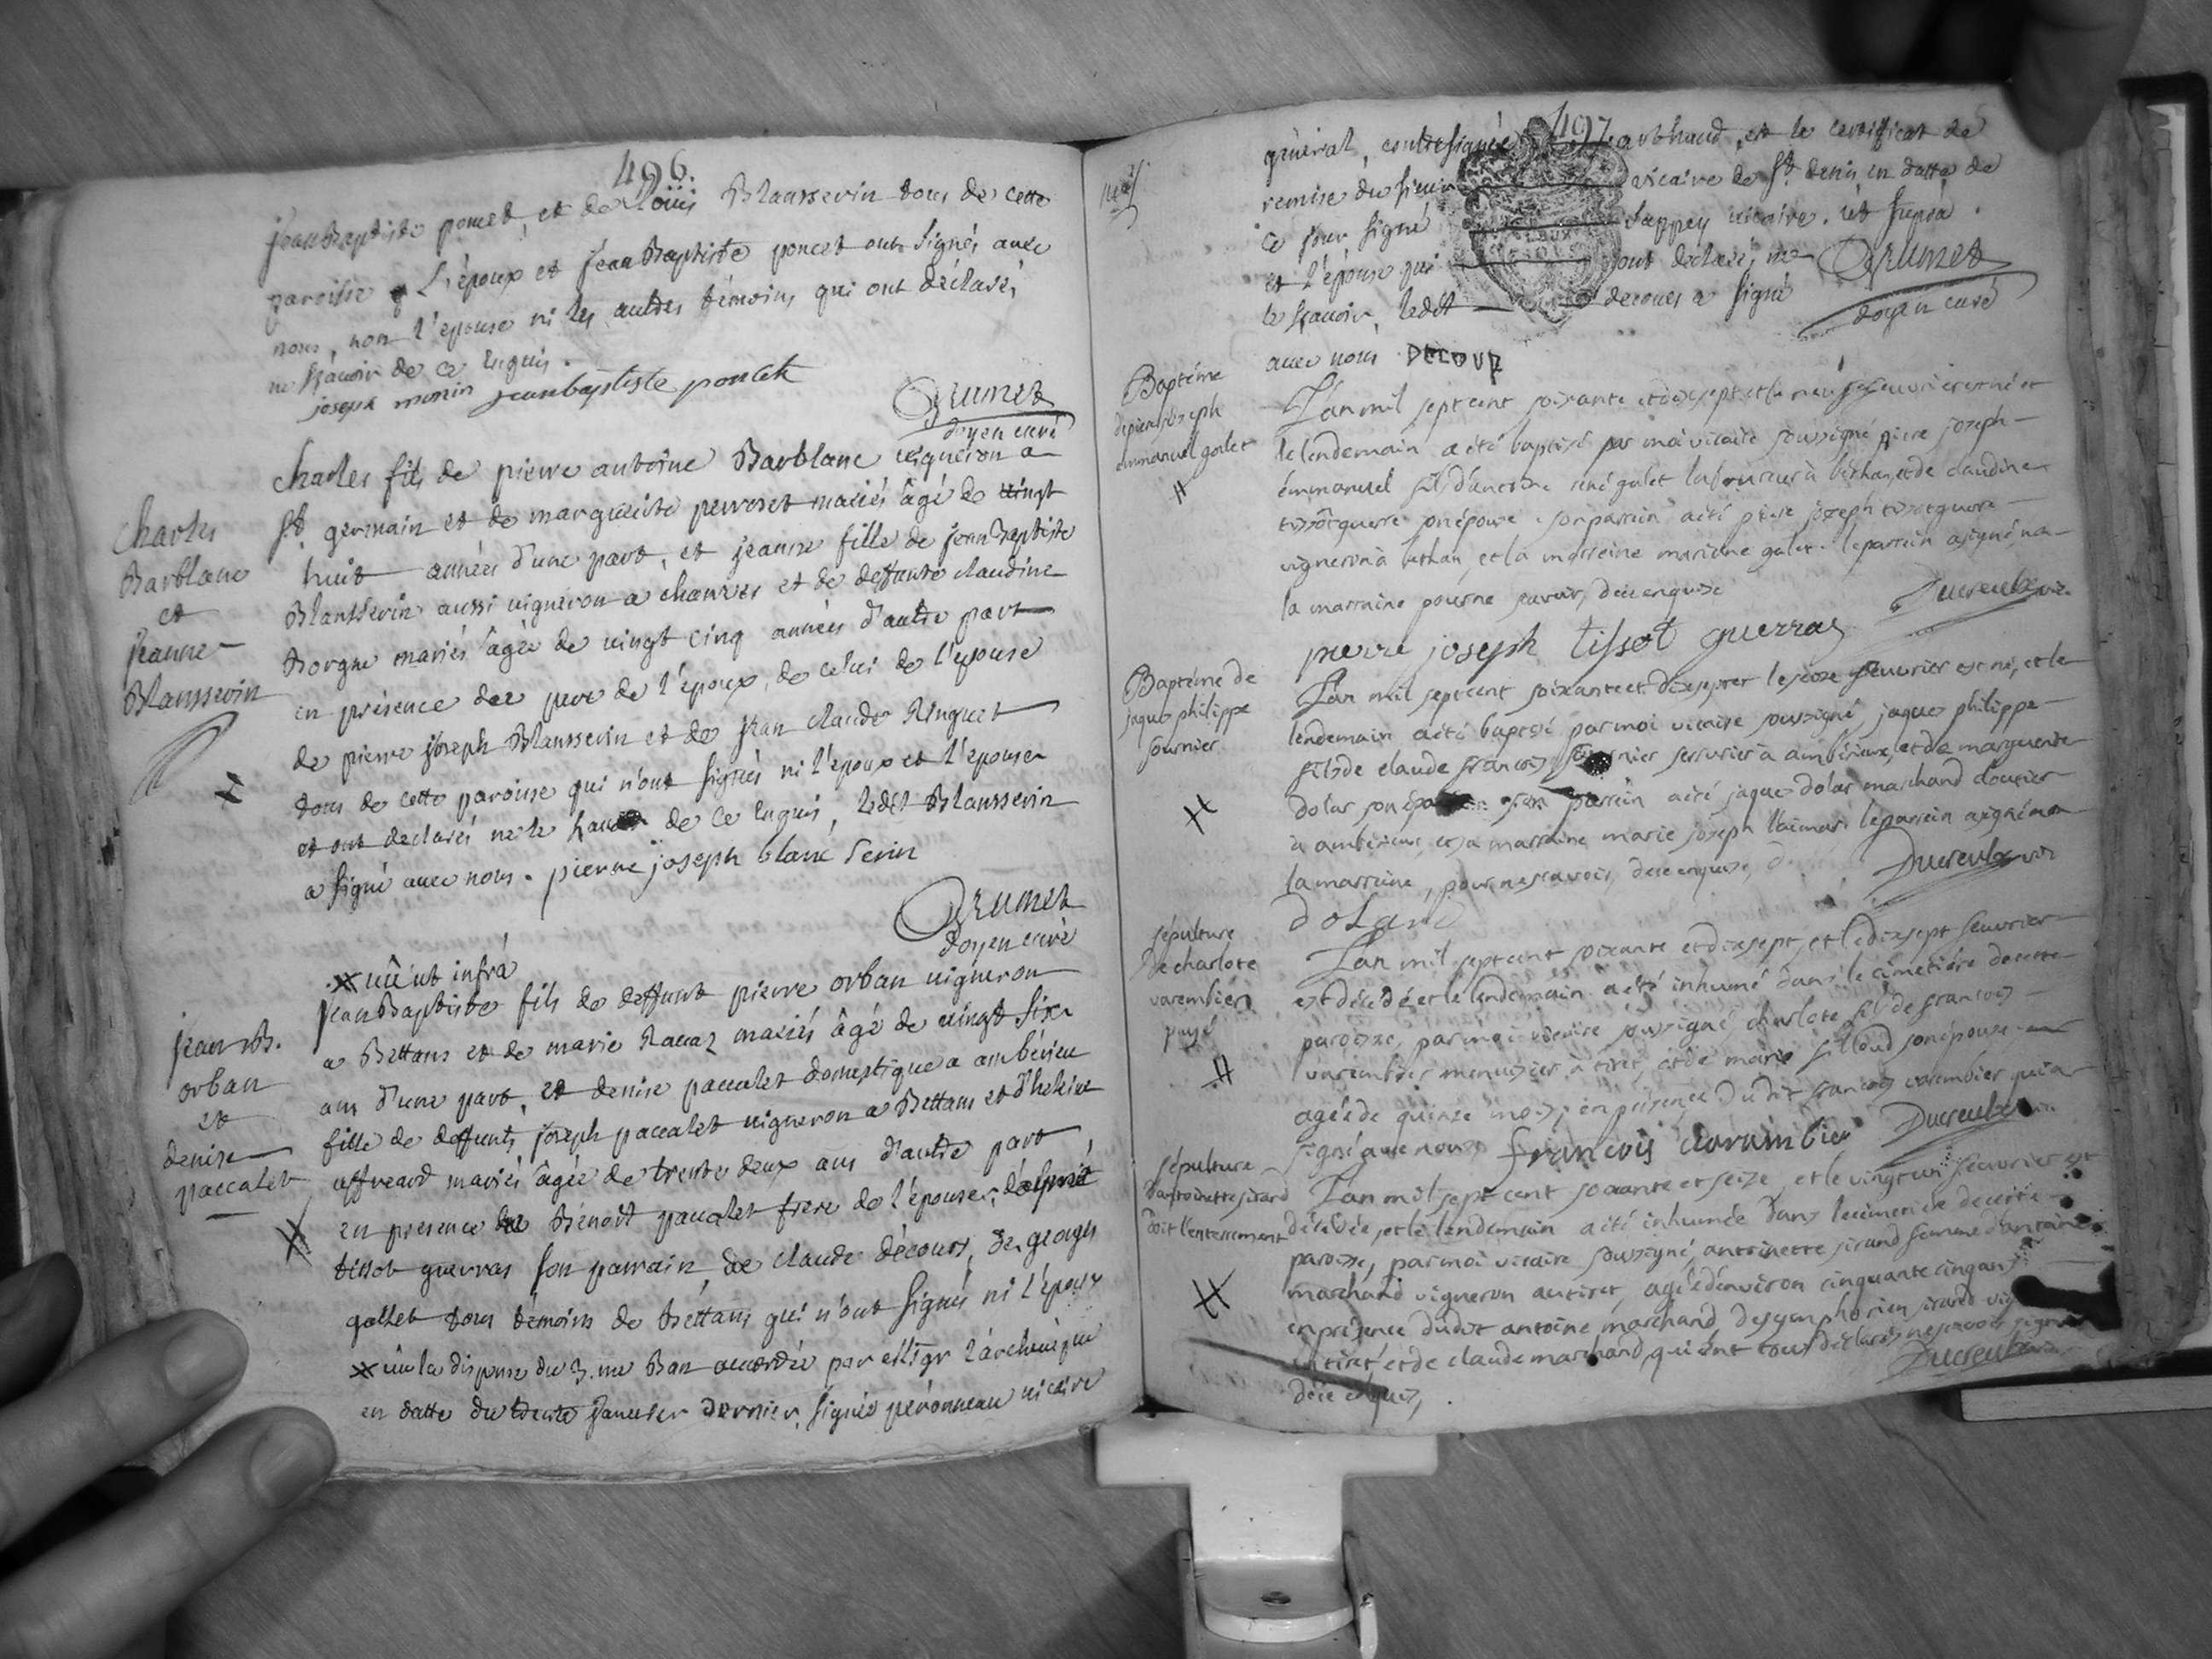 496.
jean Baptiste poncet, et de Loüis Blansserin tous de cette
paroisse L'époux et jean Baptiste poncet ont signés avec
nous, non l'epouse ni les autres témoins qui ont déclarés
ne scavoir de ce enquis.
joseph monin jeanbaptiste poncet
Grumet
doyen curé
Charles
Barblanc
et
jeanne
Blansserin
charles fils de pierre antoine Barblanc vigneron a
St. germain et de margueritte perroset mariés âgé de vingt
huit années d'une part, et jeanne fille de jean Baptiste
Blansserin aussi vigneron a chauxes et de deffunte claudine
Borgne mariés âgée de vingt cinq années d'autre part
en présence du pere de l'époux, de celui de l'epouse
de pierre joseph Blansserin et de jean claude Ringuet
tous de cette paroisse qui n'ont signés ni l'époux et l'epouse
et ont declarés ne le scavoir de ce enquis, ledit Blansserin
a signé avec nous. pierre joseph blanc serin
Grumet
doyen curé
vû ut infrà
jean B.
orban
et
denise
paccalet
jean Baptiste fils de deffunt pierre orban vigneron
a Bettans et de marie Raccaz mariés âgé de vingt six
ans d'une part, et denise paccalet domestique a ambérieu
fille de deffunts joseph paccalet vigneron a Bettans et d'
mariés âgée de trente deux ans d'autre part,
en presence de Benoit paccalet frere de l'épouse,
tissot guerraz son parrain, de claude décours, de
gollet tous témoins de Bettans qui n'ont signés ni l'époux
vû la dispense du 3.me Ban accordée par Mgr L'archevêque
en datte du trente janvier dernier, signés péronneau vicaire
497.
général, contresignée et le certificat de
remise du sieur vicaire de St. denis en datte de
ce jour signé Sappey vicaire. ut suprà.
et l'épouse qui ont declaré ne
le scavoir, ledit decours a signé
avec nous DECOUR
Grumet
doyen curé
Baptéme
de pierre joseph
emmanuel golet
L'an mil sept cent soixante et dixsept et le neuf feuvrier est né et
le lendemain a été baptisé par moi vicaire soussigné pierre joseph
emmanuel fils d'antoine golet laboureur à bethan, et de claudine
tissot guerre son épouse. son parrain a été pierre joseph tissot guerre
vigneron à bethan, et la marreine mariane golet. le parrain a signé, na
la marraine pour ne savoir, de ce enquise
Ducreux vic.
pierre joseph tissot guerraz
Baptéme de
jaque philippe
fournier
L'an mil sept cent soixante et dixsept et le seize feuvrier est né, et le
lendemain a été baptisé par moi vicaire soussigné, jaque philippe
fils de claude francois fournier serrurier à ambérieux, et de marguerite
dolar son épouse son parrain a été jaque dolar marchand cloutier
à ambérieux, et sa marraine marie joseph le parrain a signé na
la marraine, pour ne savoir, de ce enquise,
Ducreux vic
Dolard
sépulture
de charlote
varembier
L'an mil sept cent soixante et dixsept, et le dixsept feuvrier
est décédé et le lendemain a été inhumé dans le cimetière de cette
paroisse, par moi vicaire soussigné, charlote fils de francois
varembier menuisier à tiret, et de marie filloud son épouse
agée de quinze mois, en présence dudit francois varembier qui a
signé avec nous francois varambier
Ducreux
sépulture
d'antoinette sirand
doit l'enterrement
L'an mil sept cent soixante et seize, et le vingt un feuvrier est
décédée, et le lendemain a été inhumée dans le cimetière de cette
paroisse, par moi vicaire soussigné, antoinette sirand femme d'antoine
marchand vigneron au tiret, agée d'environ cinquante cinq ans
en présence dudit antoine marchand de symphorien sirand
tiret et de claude marchand, qui ont tous déclarés ne savoir signer
de ce enquis,
Ducreux